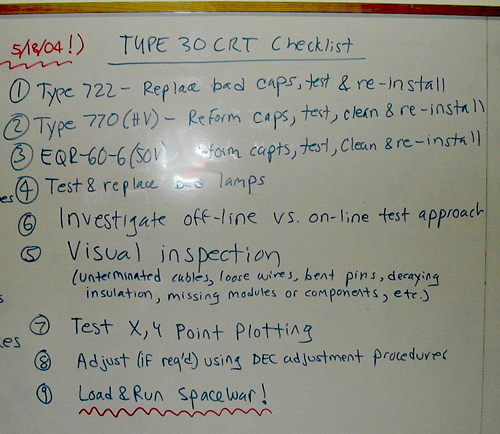 5/18/04!) TYPE 30 CRT Checklist
① Type 722 - Replace bad caps, test & re-install
② Type 770 (HV) - Reform caps, test, clean & re-install
③ EQR-60-6 (50V) capts, test, Clean & re-install
es ④ Test & replace bad lamps
⑥ Investigate off-line vs. on-line test approach
⑤ Visual inspection
(unterminated cables, loose wires, bent pins, decaying
insulation, missing modules or components, etc.)
s
⑦ Test X,Y Point Plotting
es
⑧ Adjust (if req'd) using DEC adjustment procedures
⑨ Load & Run SpaceWar!